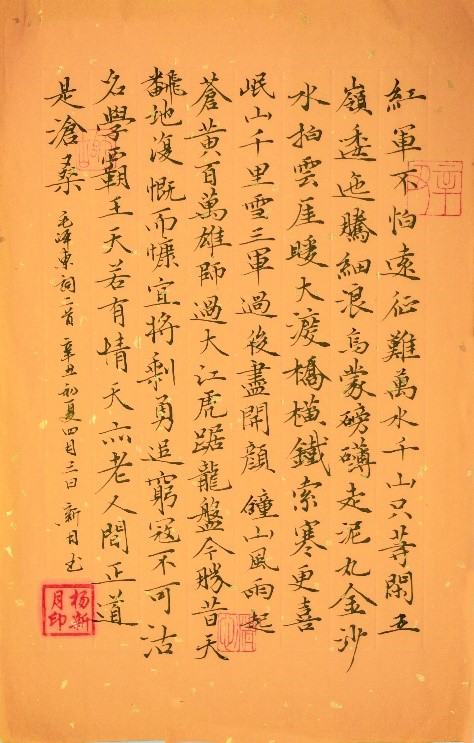 紅軍不怕遠征難萬水千山只等閑五
嶺逶迤騰細浪烏蒙磅礴走泥丸金沙
水拍雲崖暖大渡橋橫鐵索寒更喜
岷山千里雪三軍過後盡開顏 鐘山風雨起
蒼黃百萬雄師過大江虎踞龍盤今勝昔天
飜地復慨而慷宜將剩勇追窮寇不可沽
名學霸王天若有情天亦老人間正道
是滄桑 毛泽東詞二首 辛丑初夏四月三日 新月书
杨新月印